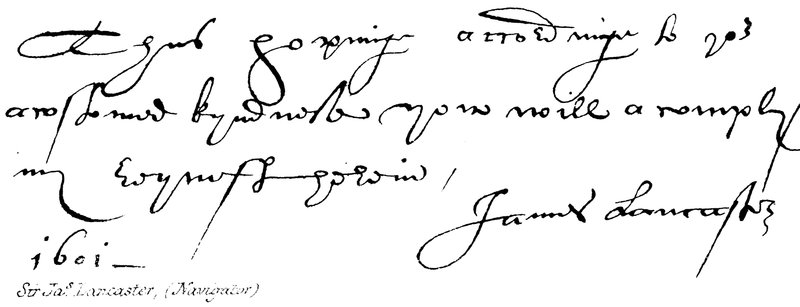 Thus hopinge accordinge to yor
acostomed kyndnesse yow will acomply
my request herein,
James Lancaster
1601
Sir Jas. Lancaster, (Navigator)